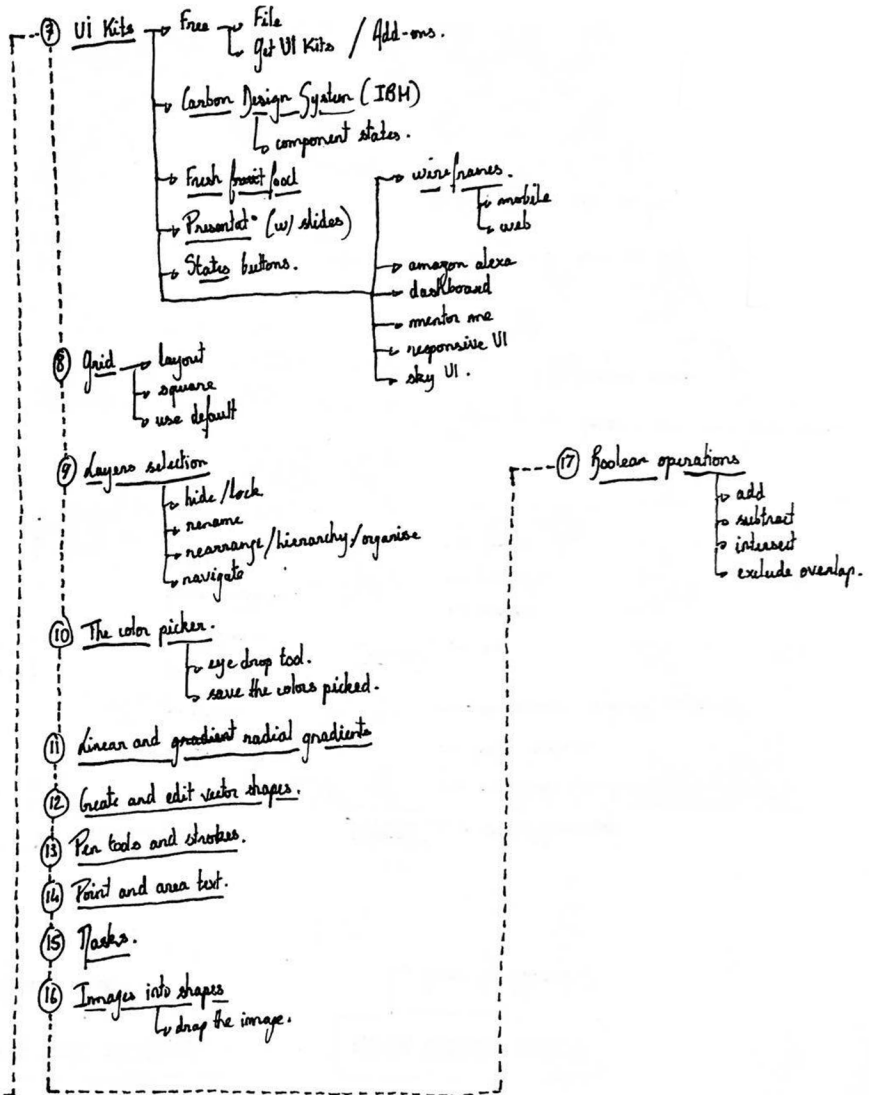 7 UI Kits Free File
Get UI Kits / Add-ons.
Carbon Design System (IBM)
component states.
Fresh food
Presentat° (w/ slides)
States buttons.
wireframes.
mobile
web
amazon alexa
dashboard
mentor me
responsive UI
sky UI.
8 Grid layout
square
use default
9 Layers selection
hide/lock
rename
rearrange/hierarchy/organise
navigate
10 The color picker.
eye drop tool.
save the colors picked.
11 Linear and gradient radial gradients
12 Create and edit vector shapes.
13 Pen tools and strokes.
14 Point and area text.
15 Masks.
16 Images into shapes
drap the image.
17 Boolean operations
add
subtract
intersect
exclude overlap.